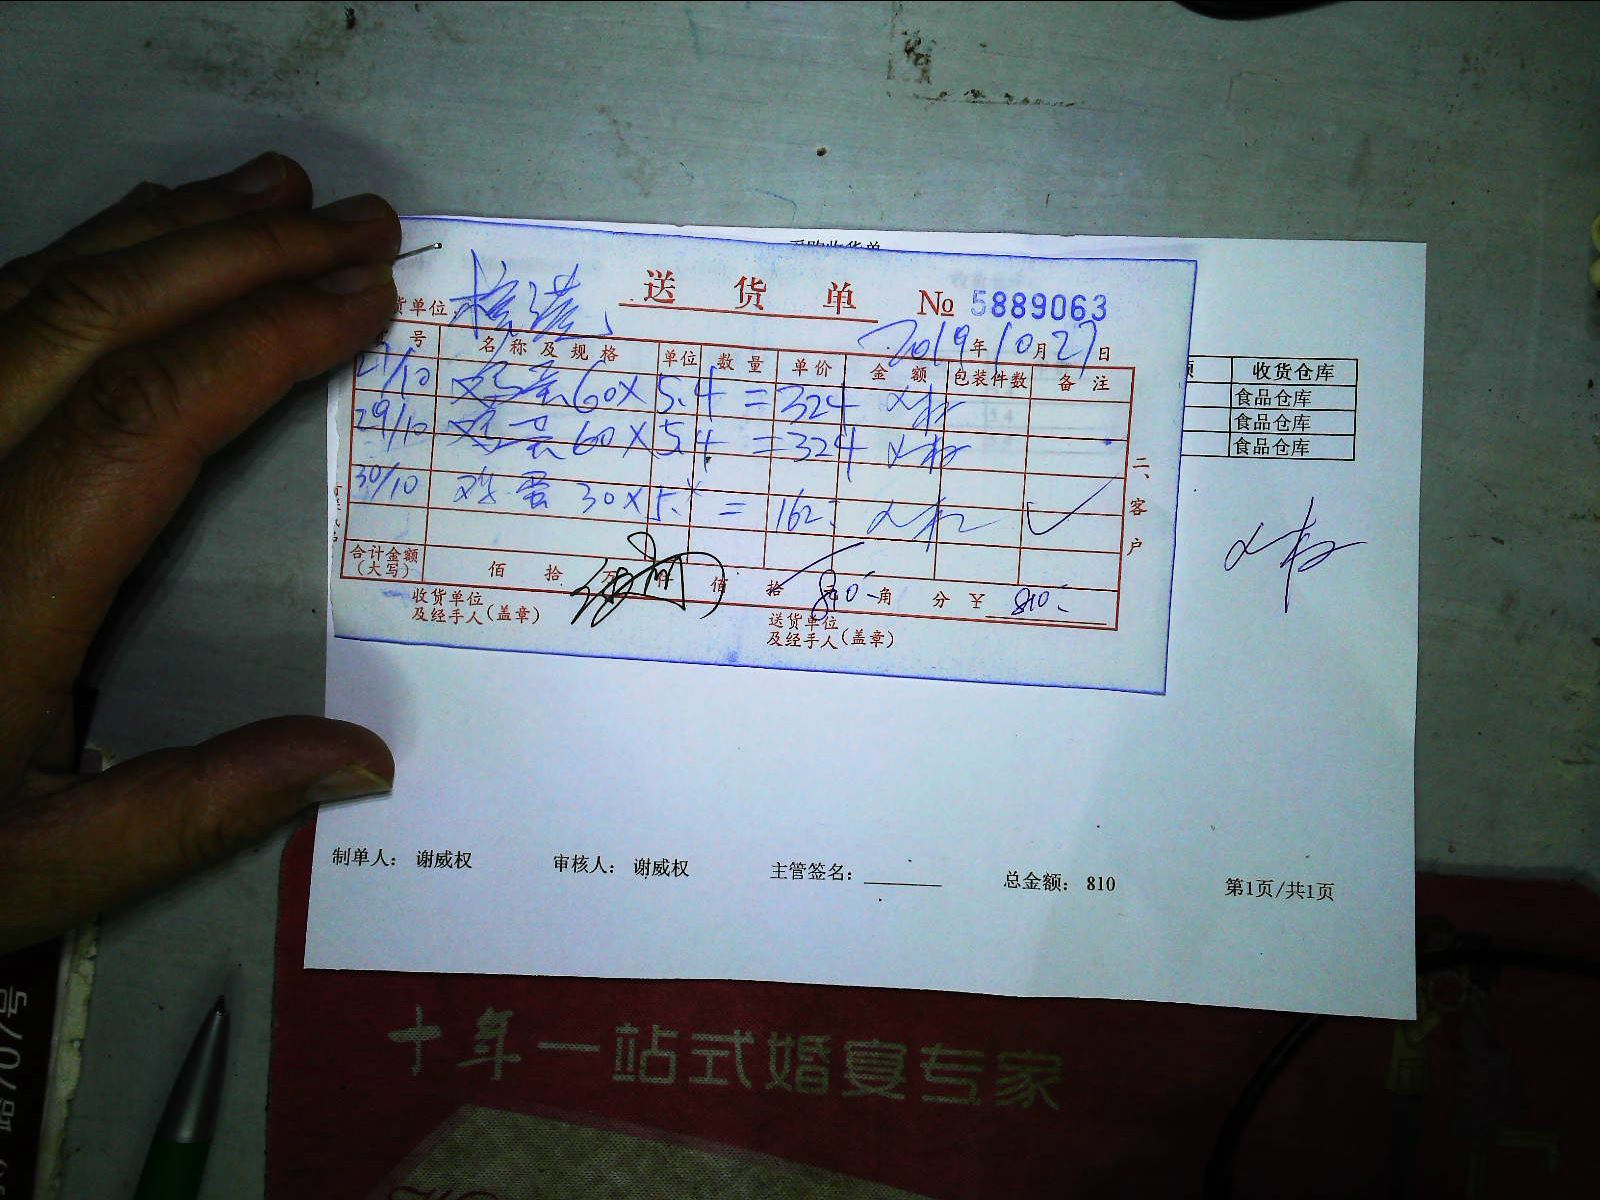 送货单 № 5889063
货单位
2019年10月27日
号 名称及规格 单位 数量 单价 金额 包装件数 备注
27/10 鸡蛋 60×5.4=324
29/10 鸡蛋 60×5.4=324
30/10 鸡蛋 30×5. =162
合计金额
(大写) 佰 拾 万 仟 佰 拾 元 角 分 ¥ 810
810
收货单位
及经手人(盖章)
送货单位
及经手人(盖章)
二、客户
收货仓库
食品仓库
食品仓库
食品仓库
制单人: 谢威权 审核人: 谢威权 主管签名: 总金额: 810 第1页/共1页
十年一站式婚宴专家